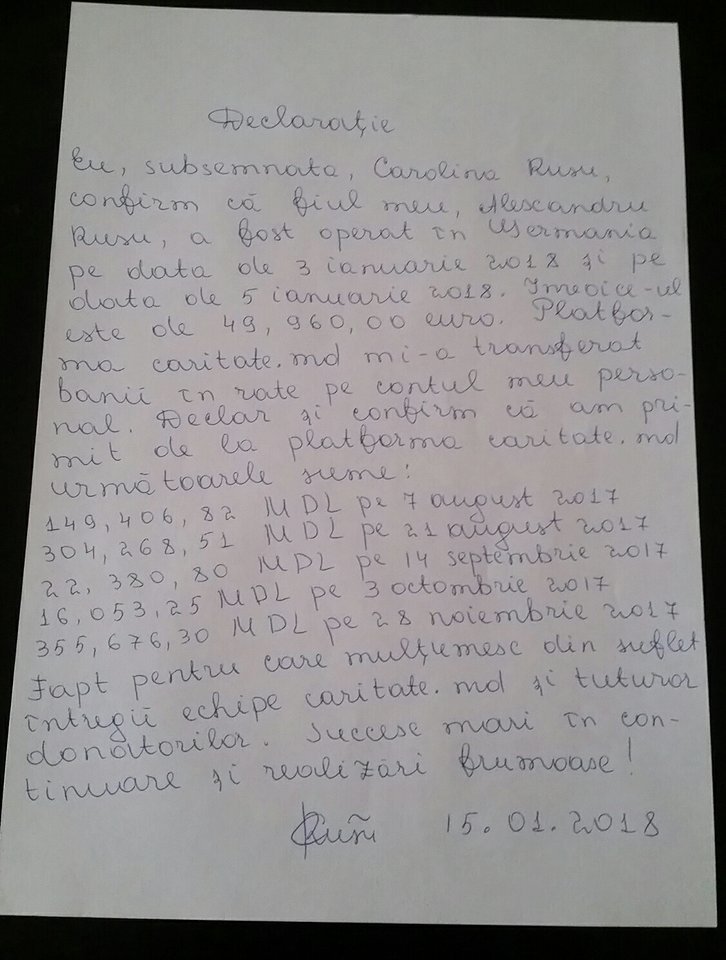 Declarație
Eu, subsemnata, Carolina Rusu,
confirm că fiul meu, Alexandru
Rusu, a fost operat în Germania
pe data de 3 ianuarie 2018 și pe
data de 5 ianuarie 2018. Invoice-ul
este de 49,960,00 euro. Platfor-
ma caritate.md mi-a transferat
banii în rate pe contul meu perso-
nal. Declar și confirm că am pri-
mit de la platforma caritate.md
următoarele sume:
149,406,82 MDL pe 7 august 2017
304,268,51 MDL pe 21 august 2017
22,380,80 MDL pe 14 septembrie 2017
16,053,25 MDL pe 3 octombrie 2017
355,676,30 MDL pe 28 noiembrie 2017
Fapt pentru care mulțumesc din suflet
întregii echipe caritate.md și tuturor
donatorilor. Succese mari în con-
tinuare și realizări frumoase!
Rusu 15.01.2018